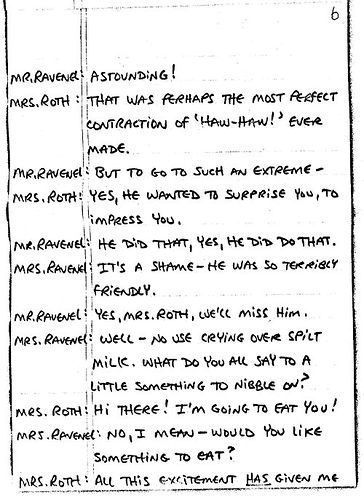 6
MR.RAVENEL: ASTOUNDING!
MRS.ROTH: THAT WAS PERHAPS THE MOST PERFECT
CONTRACTION OF 'HAW-HAW!' EVER
MADE.
MR.RAVENEL: BUT TO GO TO SUCH AN EXTREME-
MRS.ROTH: YES, HE WANTED TO SURPRISE YOU, TO
IMPRESS YOU.
MR.RAVENEL: HE DID THAT, YES, HE DID DO THAT.
MRS.RAVENEL: IT'S A SHAME-HE WAS SO TERRIBLY
FRIENDLY.
MR.RAVENEL: YES, MRS.ROTH, WE'LL MISS HIM.
MRS.RAVENEL: WELL- NO USE CRYING OVER SPILT
MILK. WHAT DO YOU ALL SAY TO A
LITTLE SOMETHING TO NIBBLE ON?
MRS. ROTH: HI THERE! I'M GOING TO EAT YOU!
MRS.RAVENEL: NO, I MEAN-WOULD YOU LIKE
SOMETHING TO EAT?
MRS.ROTH: ALL THIS EXCITEMENT HAS GIVEN ME